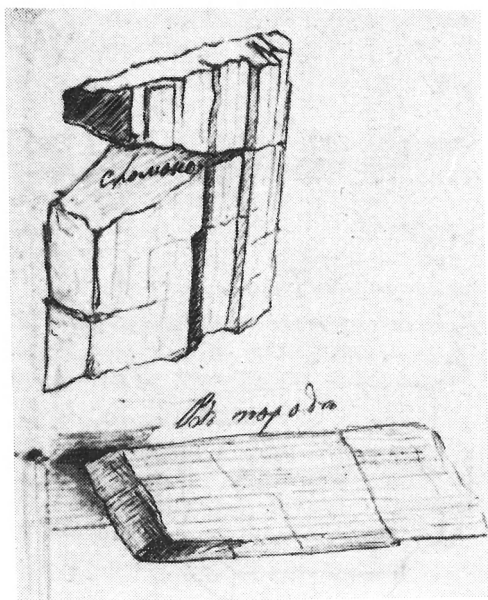 сломано
Въ породѣ